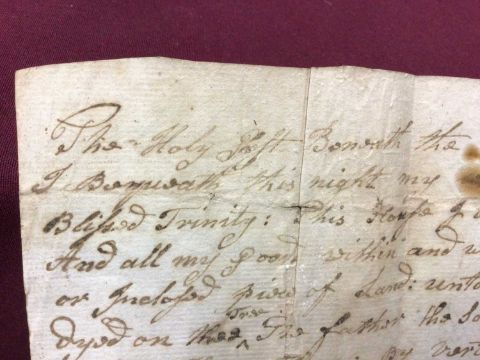 The Holy Gift Beneath the
I Bequeath this night my
Blissed Trinity: This House I
And all my Good within and w
or Inclosed piece of Land: unto
dyed on thee Tree ^ The father the So